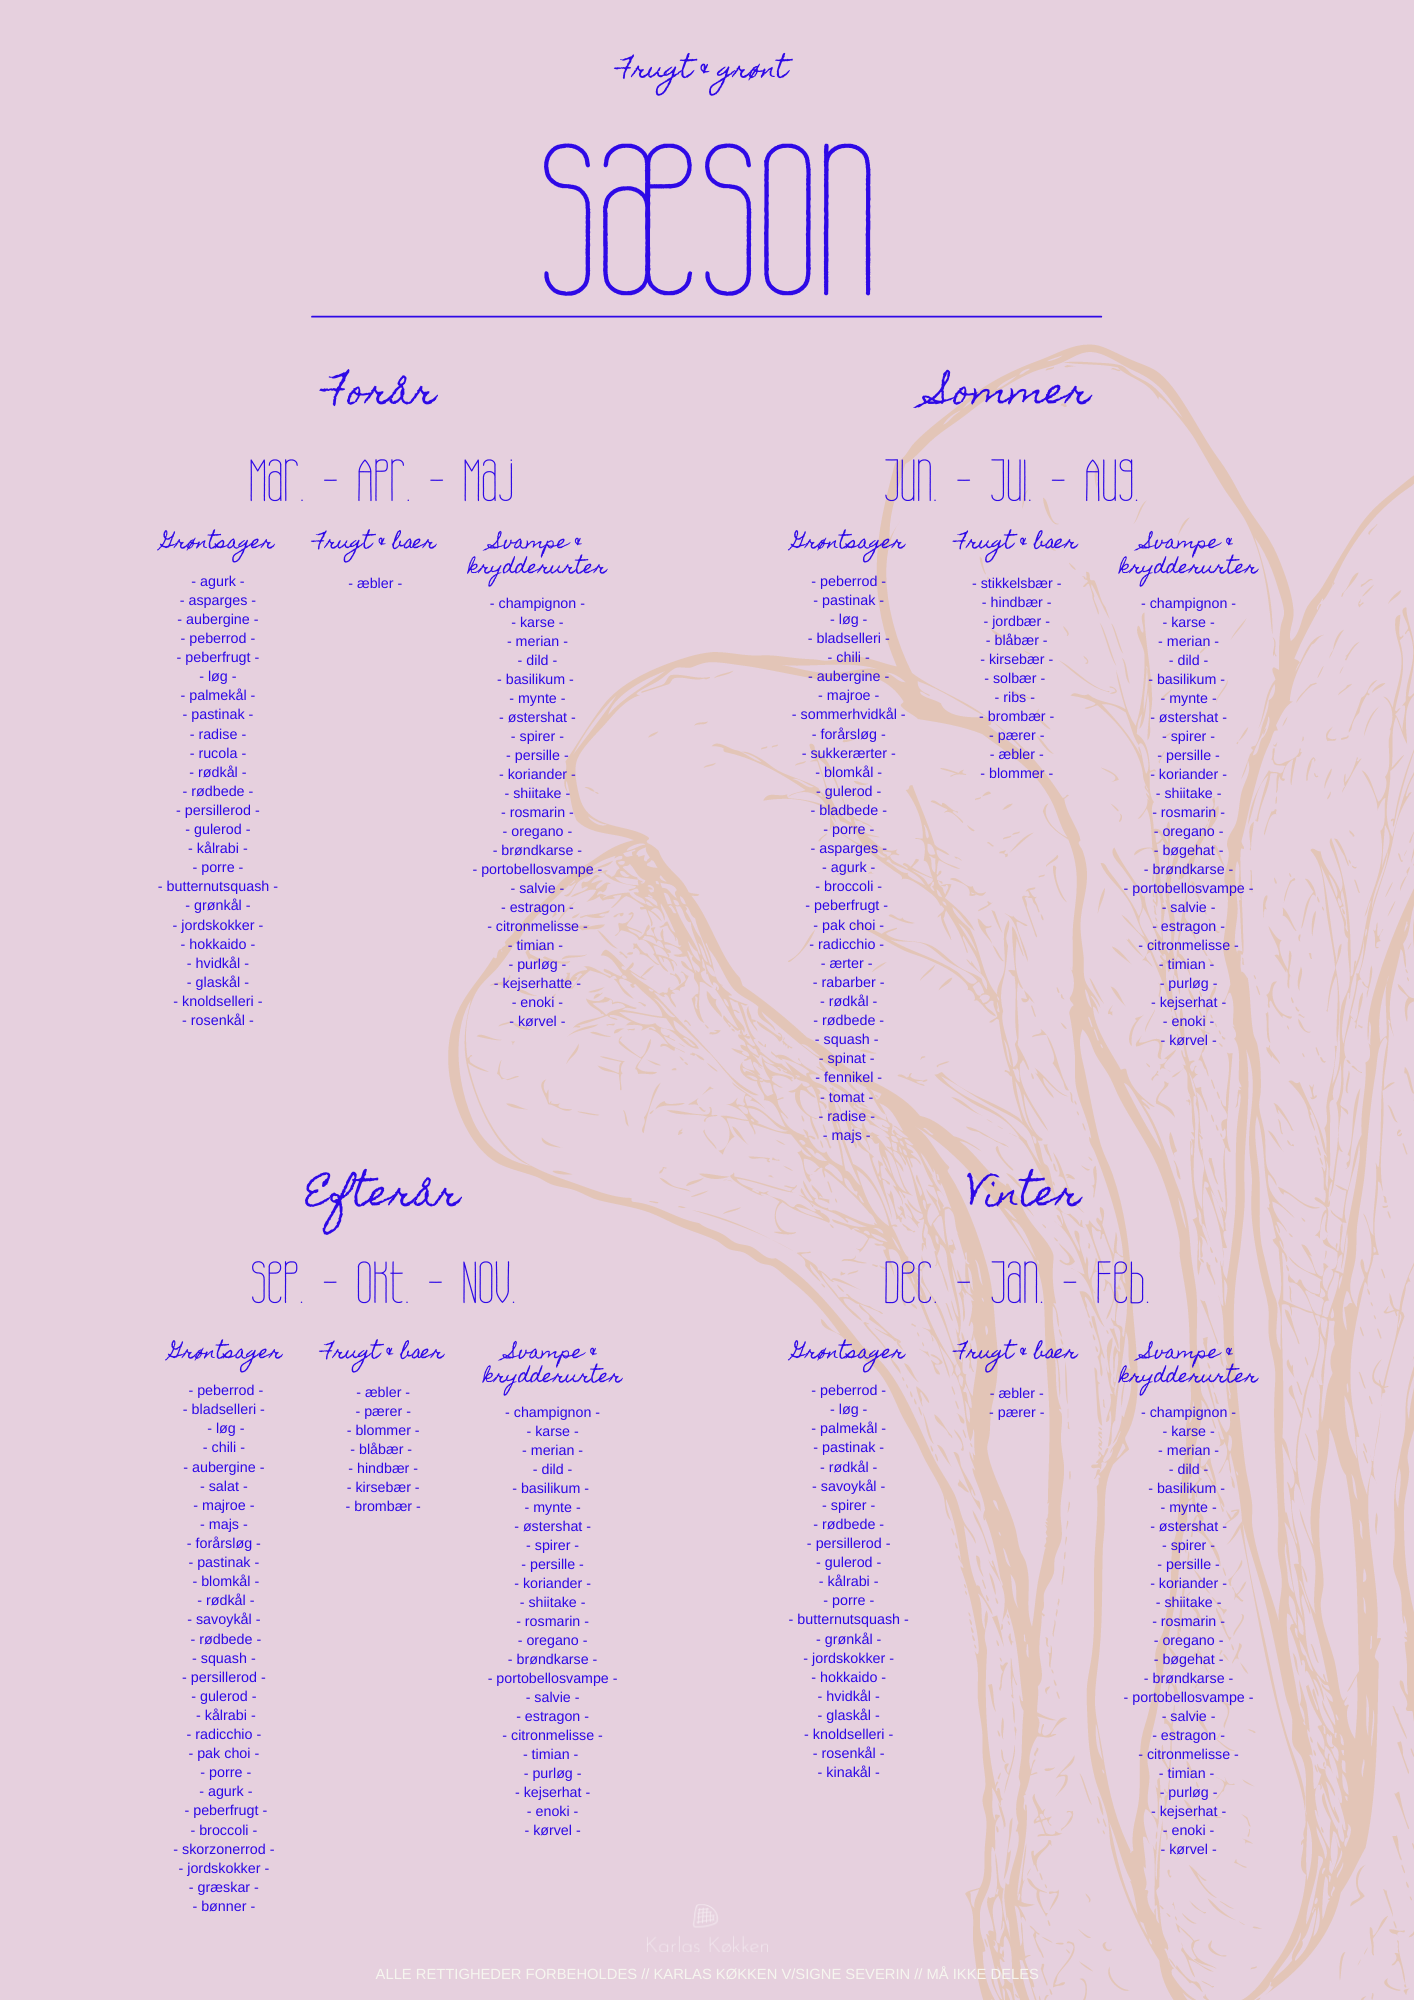 Frugt & grønt
sæson
Forår
Mar. - Apr. - Maj
Grøntsager
- agurk -
- asparges -
- aubergine -
- peberrod -
- peberfrugt -
- løg -
- palmekål -
- pastinak -
- radise -
- rucola -
- rødkål -
- rødbede -
- persillerod -
- gulerod -
- kålrabi -
- porre -
- butternutsquash -
- grønkål -
- jordskokker -
- hokkaido -
- hvidkål -
- glaskål -
- knoldselleri -
- rosenkål -
Frugt & bær
- æbler -
Svampe &
krydderurter
- champignon -
- karse -
- merian -
- dild -
- basilikum -
- mynte -
- østershat -
- spirer -
- persille -
- koriander -
- shiitake -
- rosmarin -
- oregano -
- brøndkarse -
- portobellosvampe -
- salvie -
- estragon -
- citronmelisse -
- timian -
- purløg -
- kejserhatte -
- enoki -
- kørvel -
Sommer
Jun. - Jul. - Aug.
Grøntsager
- peberrod -
- pastinak -
- løg -
- bladselleri -
- chili -
- aubergine -
- majroe -
- sommerhvidkål -
- forårsløg -
- sukkerærter -
- blomkål -
- gulerod -
- bladbede -
- porre -
- asparges -
- agurk -
- broccoli -
- peberfrugt -
- pak choi -
- radicchio -
- ærter -
- rabarber -
- rødkål -
- rødbede -
- squash -
- spinat -
- fennikel -
- tomat -
- radise -
- majs -
Frugt & bær
- stikkelsbær -
- hindbær -
- jordbær -
- blåbær -
- kirsebær -
- solbær -
- ribs -
- brombær -
- pærer -
- æbler -
- blommer -
Svampe &
krydderurter
- champignon -
- karse -
- merian -
- dild -
- basilikum -
- mynte -
- østershat -
- spirer -
- persille -
- koriander -
- shiitake -
- rosmarin -
- oregano -
- bøgehat -
- brøndkarse -
- portobellosvampe -
- salvie -
- estragon -
- citronmelisse -
- timian -
- purløg -
- kejserhat -
- enoki -
- kørvel -
Efterår
Sep. - Okt. - Nov.
Grøntsager
- peberrod -
- bladselleri -
- løg -
- chili -
- aubergine -
- salat -
- majroe -
- majs -
- forårsløg -
- pastinak -
- blomkål -
- rødkål -
- savoykål -
- rødbede -
- squash -
- persillerod -
- gulerod -
- kålrabi -
- radicchio -
- pak choi -
- porre -
- agurk -
- peberfrugt -
- broccoli -
- skorzonerrod -
- jordskokker -
- græskar -
- bønner -
Frugt & bær
- æbler -
- pærer -
- blommer -
- blåbær -
- hindbær -
- kirsebær -
- brombær -
Svampe &
krydderurter
- champignon -
- karse -
- merian -
- dild -
- basilikum -
- mynte -
- østershat -
- spirer -
- persille -
- koriander -
- shiitake -
- rosmarin -
- oregano -
- brøndkarse -
- portobellosvampe -
- salvie -
- estragon -
- citronmelisse -
- timian -
- purløg -
- kejserhat -
- enoki -
- kørvel -
Vinter
Dec. - Jan. - Feb.
Grøntsager
- peberrod -
- løg -
- palmekål -
- pastinak -
- rødkål -
- savoykål -
- spirer -
- rødbede -
- persillerod -
- gulerod -
- kålrabi -
- porre -
- butternutsquash -
- grønkål -
- jordskokker -
- hokkaido -
- hvidkål -
- glaskål -
- knoldselleri -
- rosenkål -
- kinakål -
Frugt & bær
- æbler -
- pærer -
Svampe &
krydderurter
- champignon -
- karse -
- merian -
- dild -
- basilikum -
- mynte -
- østershat -
- spirer -
- persille -
- koriander -
- shiitake -
- rosmarin -
- oregano -
- bøgehat -
- brøndkarse -
- portobellosvampe -
- salvie -
- estragon -
- citronmelisse -
- timian -
- purløg -
- kejserhat -
- enoki -
- kørvel -
Karlas Køkken
ALLE RETTIGHEDER FORBEHOLDES // KARLAS KØKKEN V/SIGNE SEVERIN // MÅ IKKE DELES